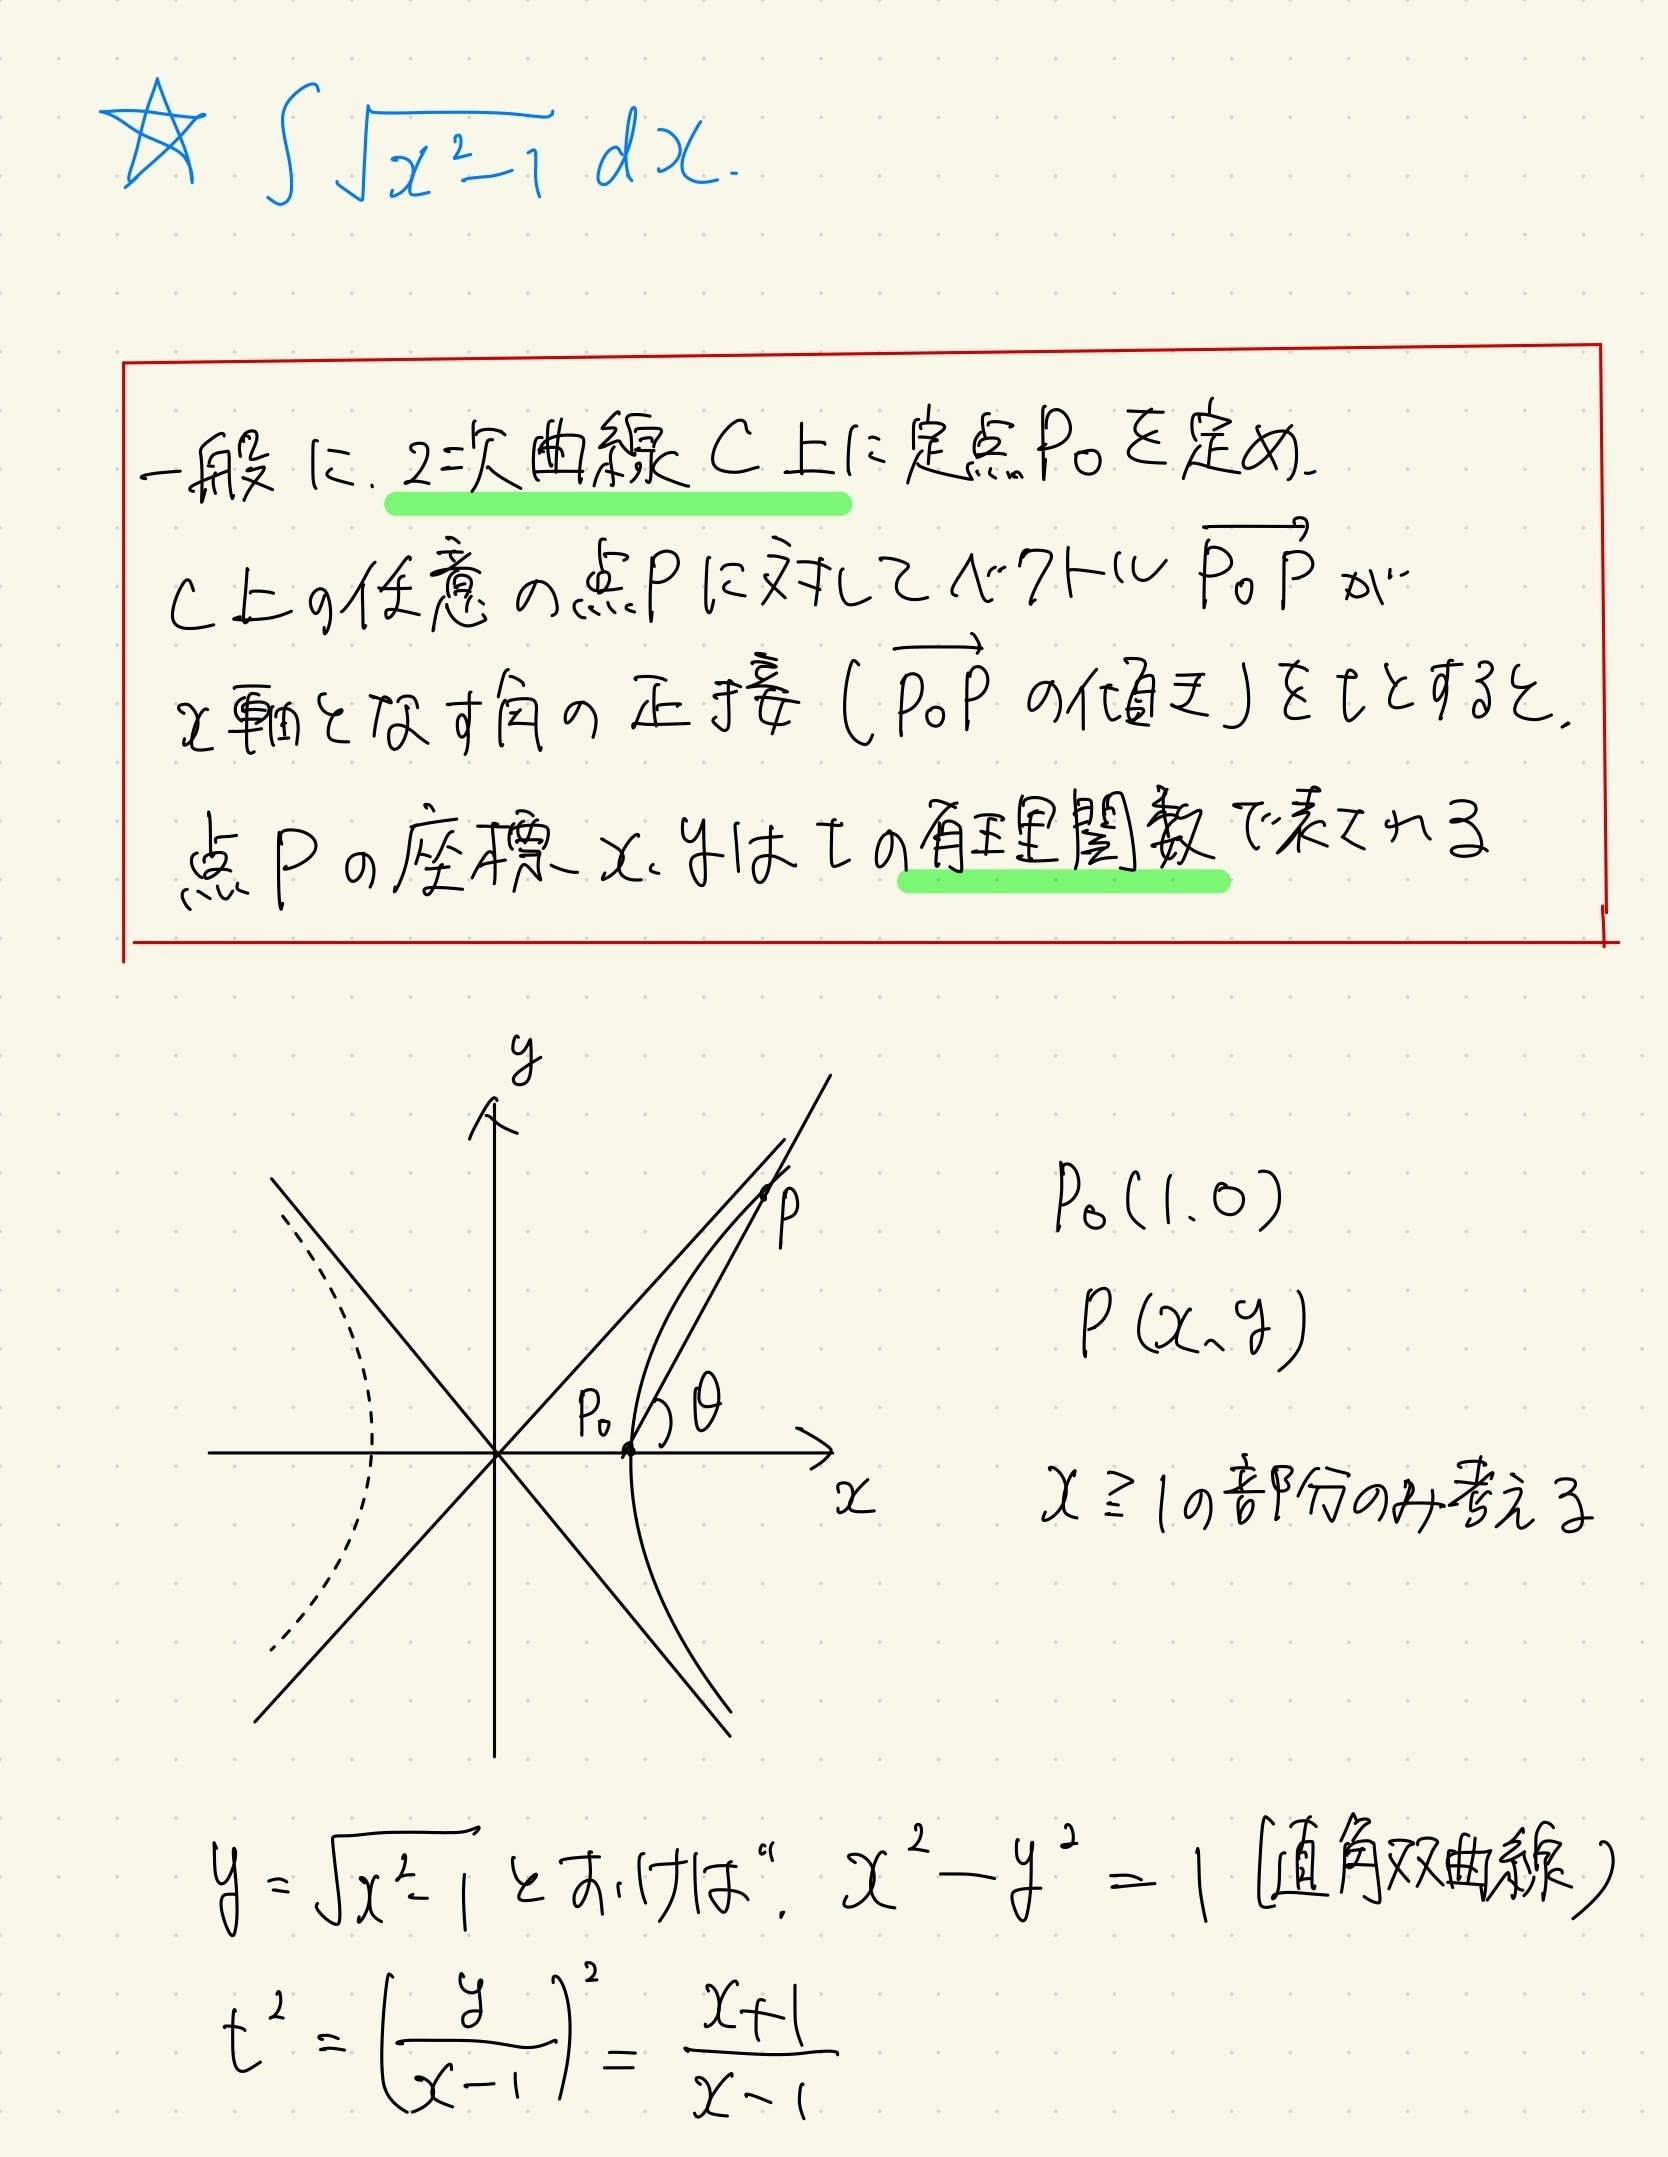 ☆ ∫√(x²-1) dx.
一般に、2次曲線C上に定点P₀を定め、
C上の任意の点Pに対してベクトル P₀P が
x軸となす角の正接 (P₀P の傾き) をtとすると、
点Pの座標x、yはtの有理関数で表される
y
P
P₀ θ
x
P₀(1.0)
P(x、y)
x≧1の部分のみ考える
y=√(x²-1) とおけば、x²-y²=1 (直角双曲線)
t² = (y/(x-1))² = (x+1)/(x-1)